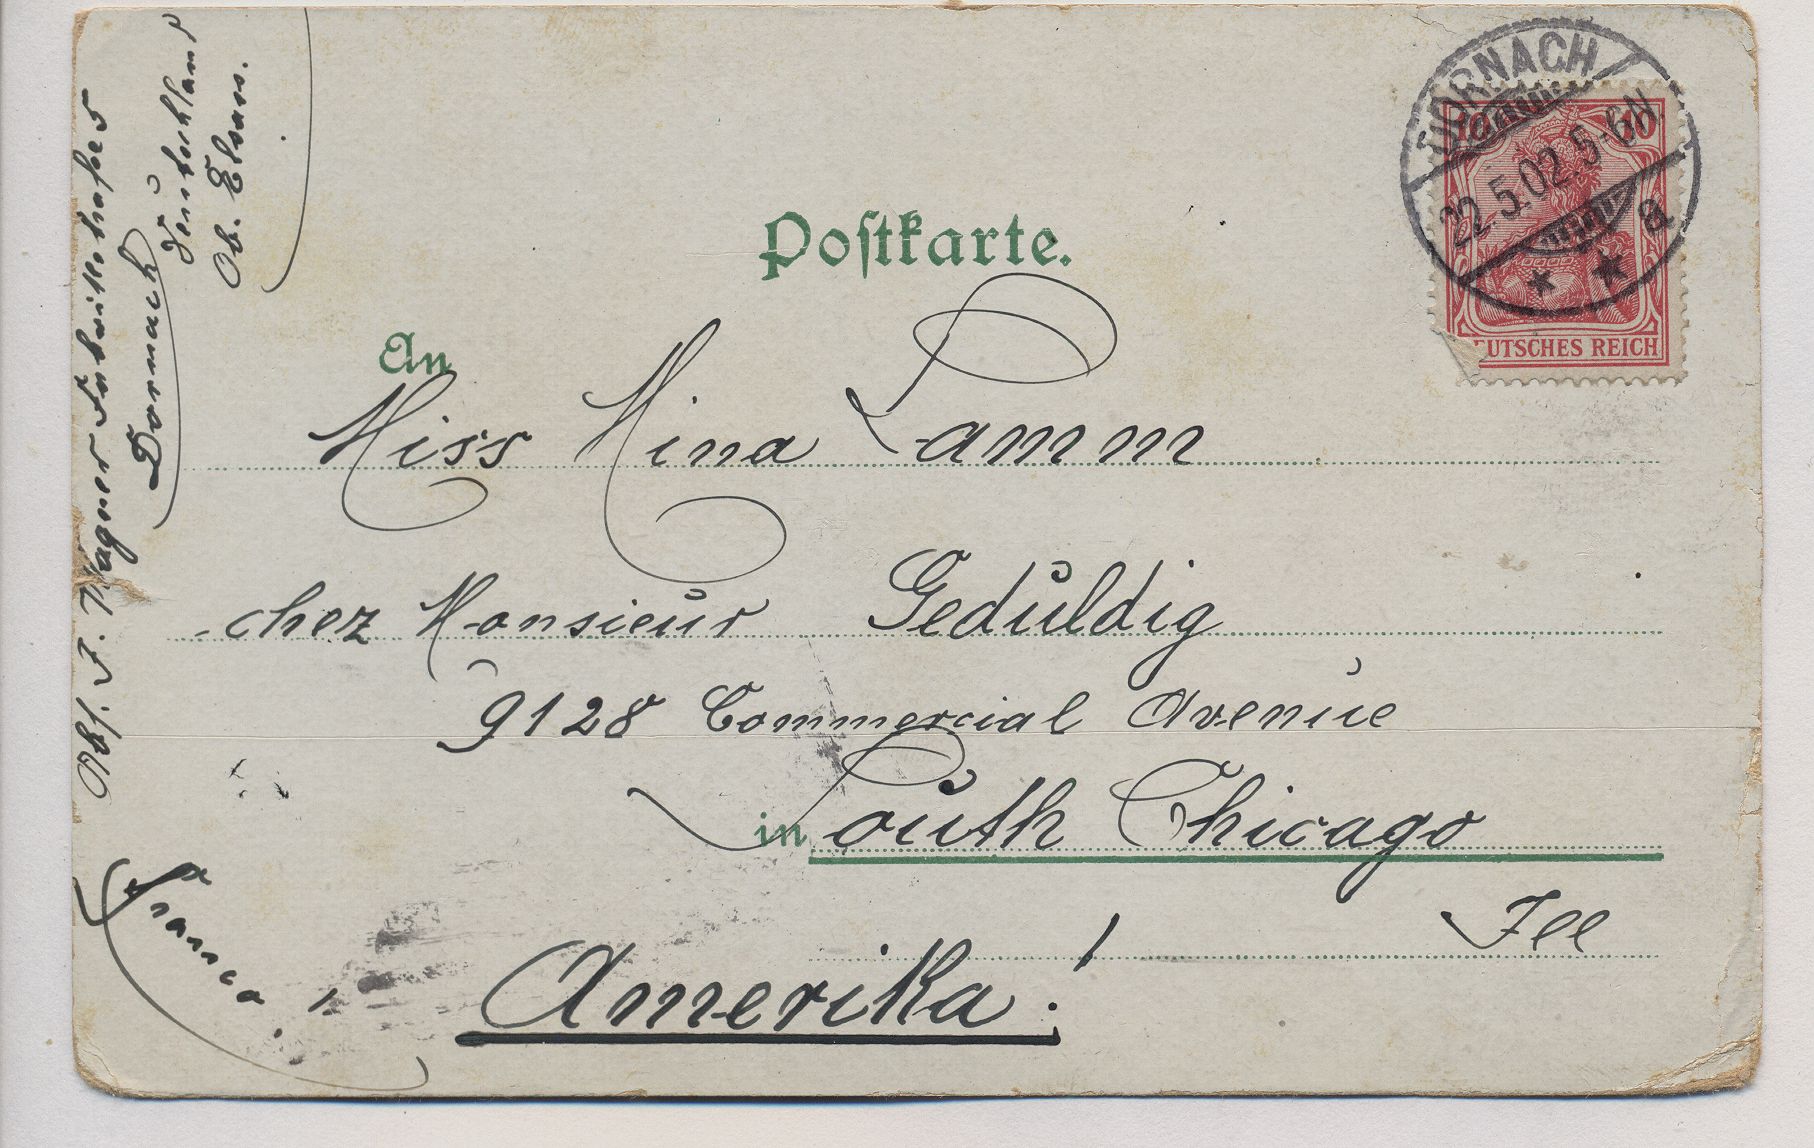 Postkarte.
DORNACH
22.5.02.5-6N
a
10 10
DEUTSCHES REICH
An
Miss Mina Lamm
chez Monsieur Geduldig
9128 Commercial Avenue
in South Chicago
Ill
Amerika!
Franco!
Abs. J. Wagner
Dornach
Deutschland
Ob. Elsass.